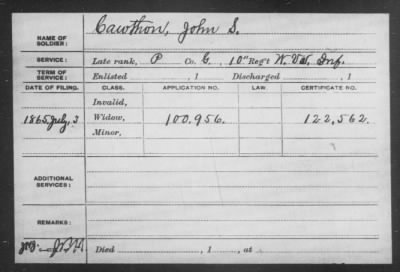 NAME OF SOLDIER: Cawthon, John S.
SERVICE: Late rank, P Co. G, 10" Reg't W. Va. Inf.
TERM OF SERVICE: Enlisted , 1 Discharged , 1
DATE OF FILING. CLASS. APPLICATION NO. LAW. CERTIFICATE NO.
Invalid,
1865 July, 3 Widow, 100.956. 122,562.
Minor,
ADDITIONAL SERVICES:
REMARKS:
Died , 1 , at